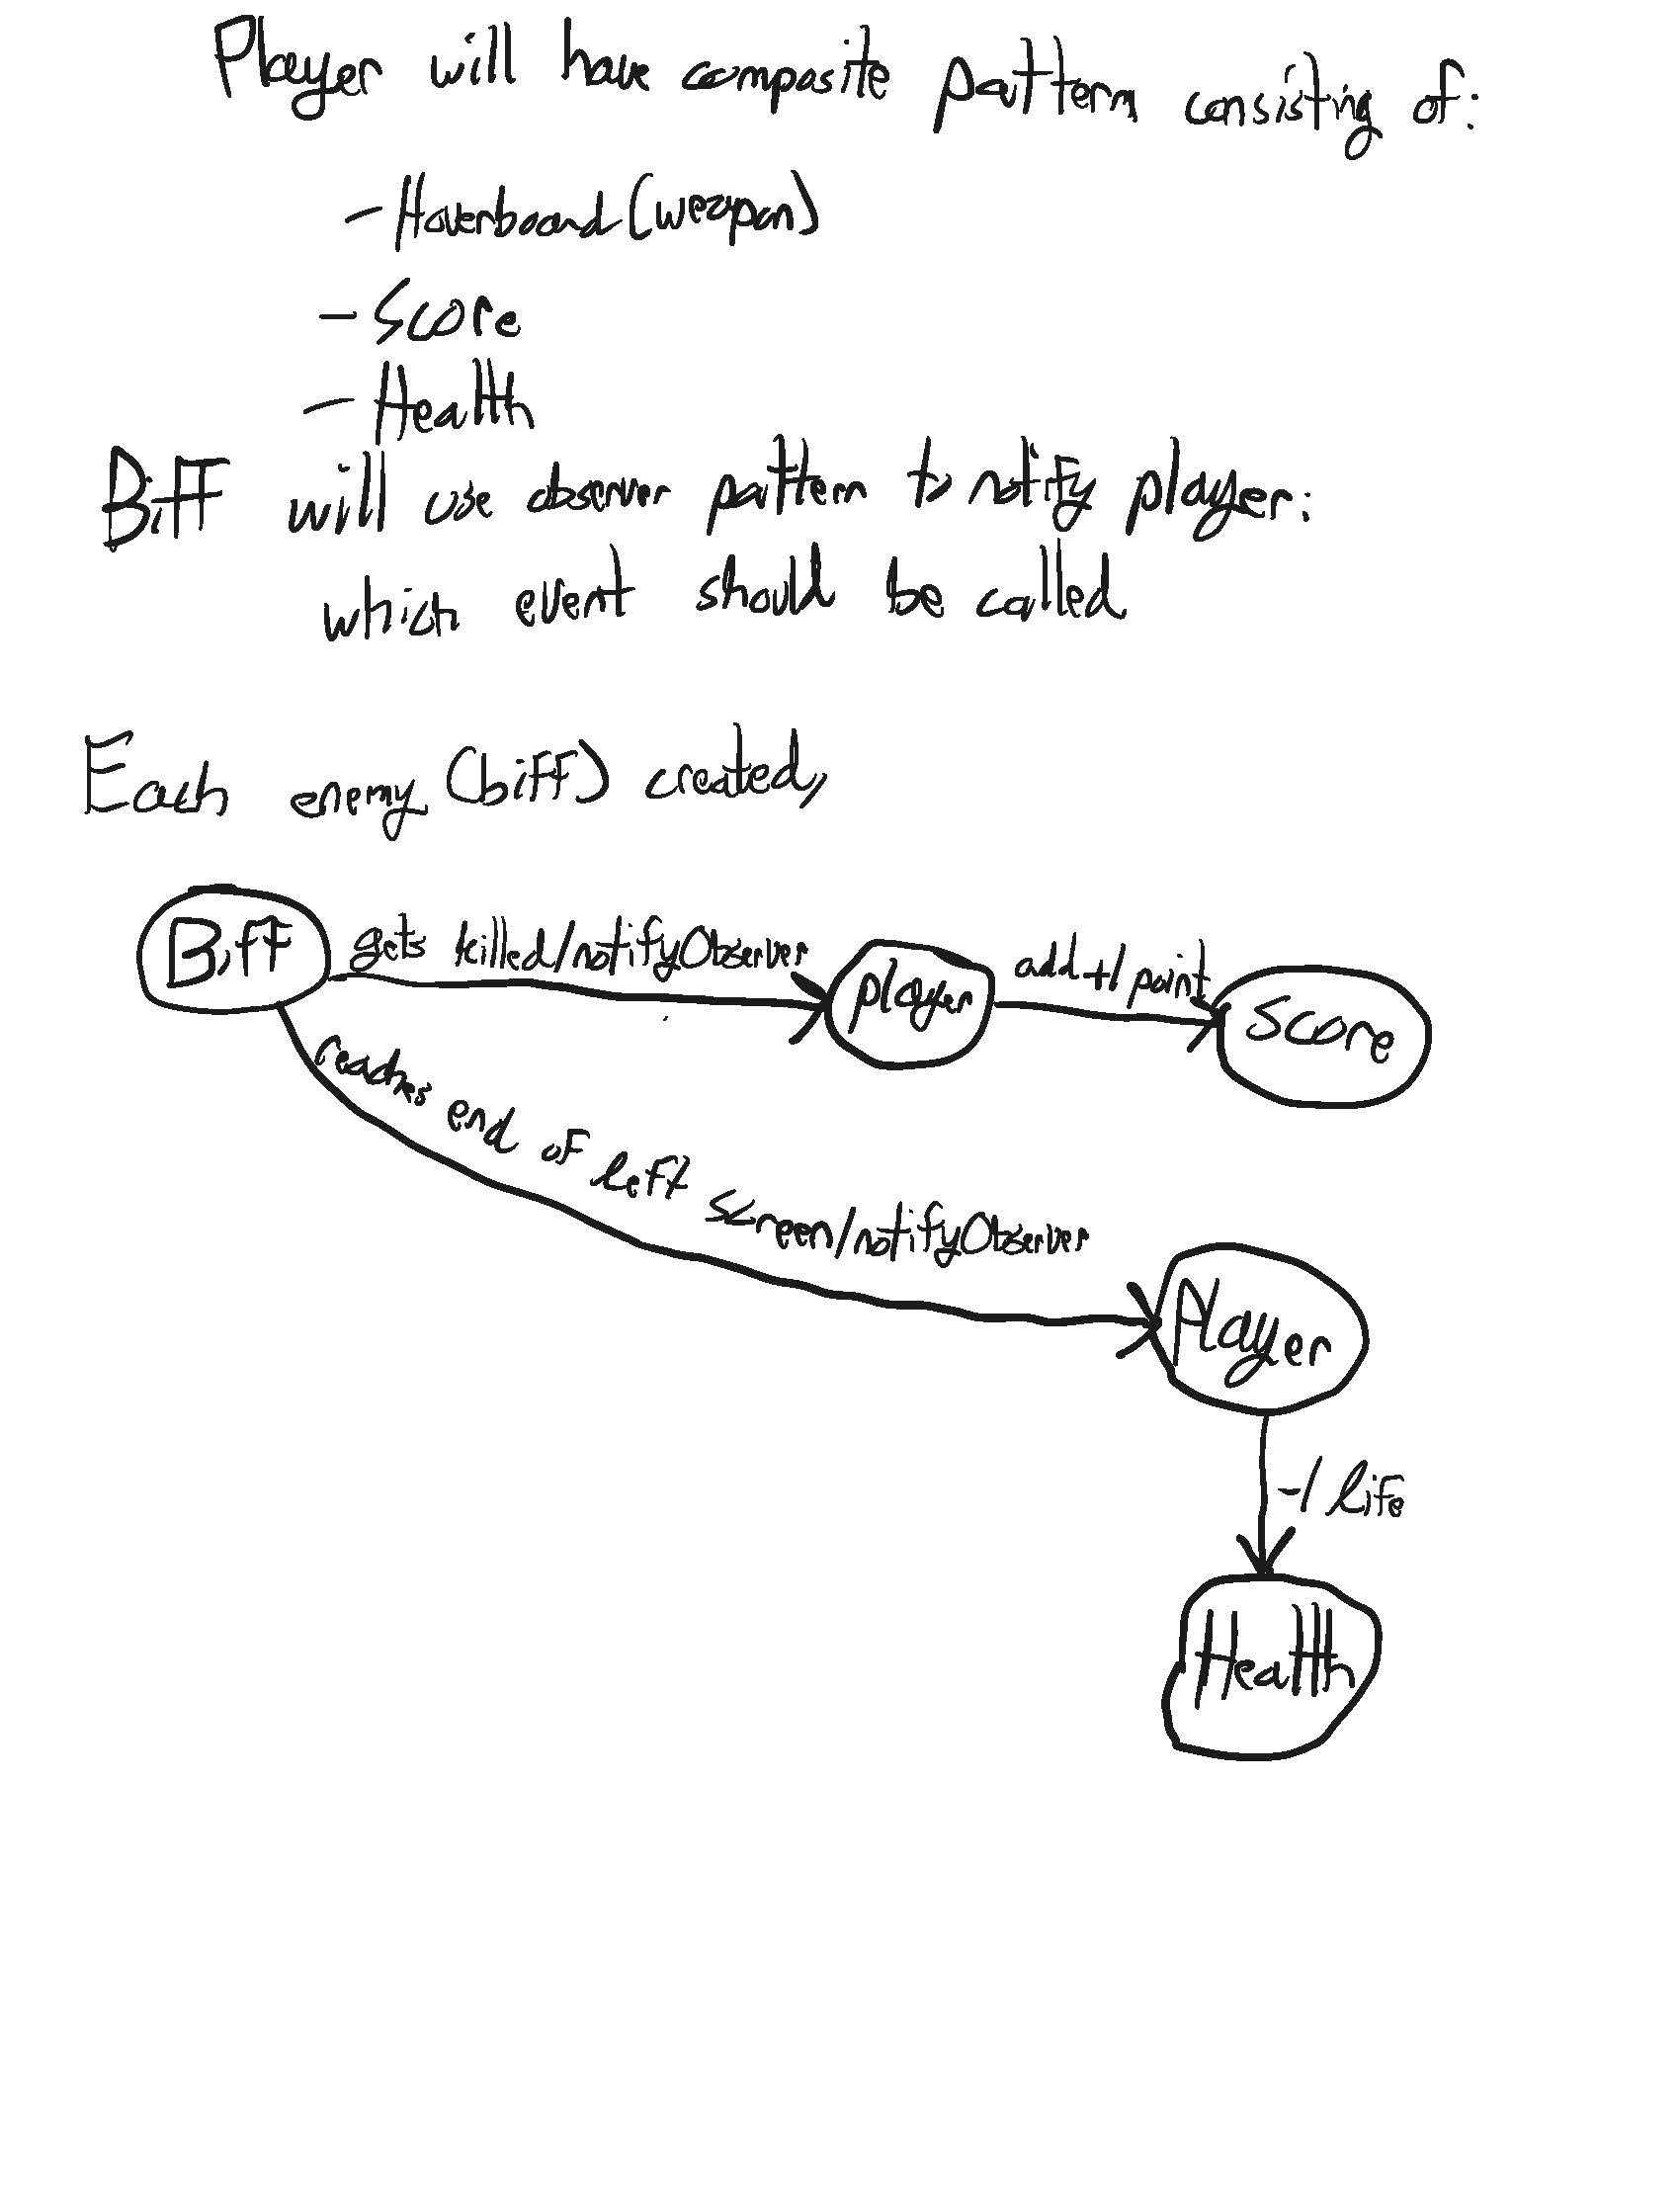 Player will have composite pattern consisting of:
- Hoverboard (weapon)
- Score
- Health
Biff will use observer pattern to notify player:
which event should be called
Each enemy (biff) created,
Biff
gets killed/notifyObserver
player
add +1 point
Score
reaches end of left screen/notifyObserver
Player
-1 life
Health